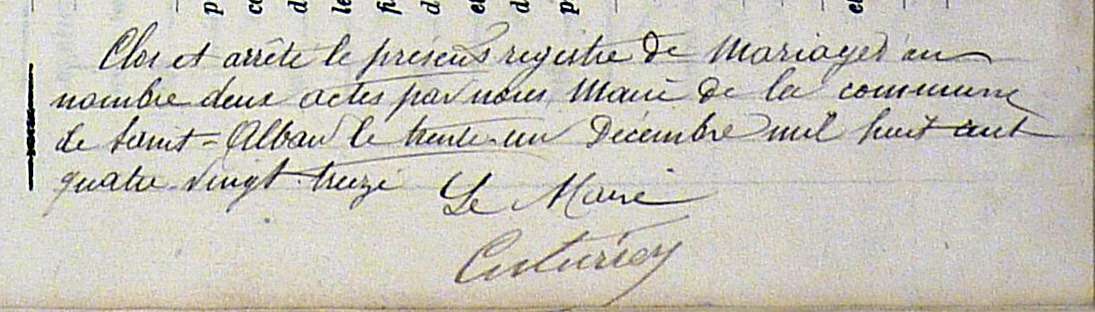 Clos et arrête le présent registre de Mariages au
nombre deux actes par nous, Maire de la commune
de Saint-Alban le trente-un Décembre mil huit cent
quatre vingt treize
Le Maire